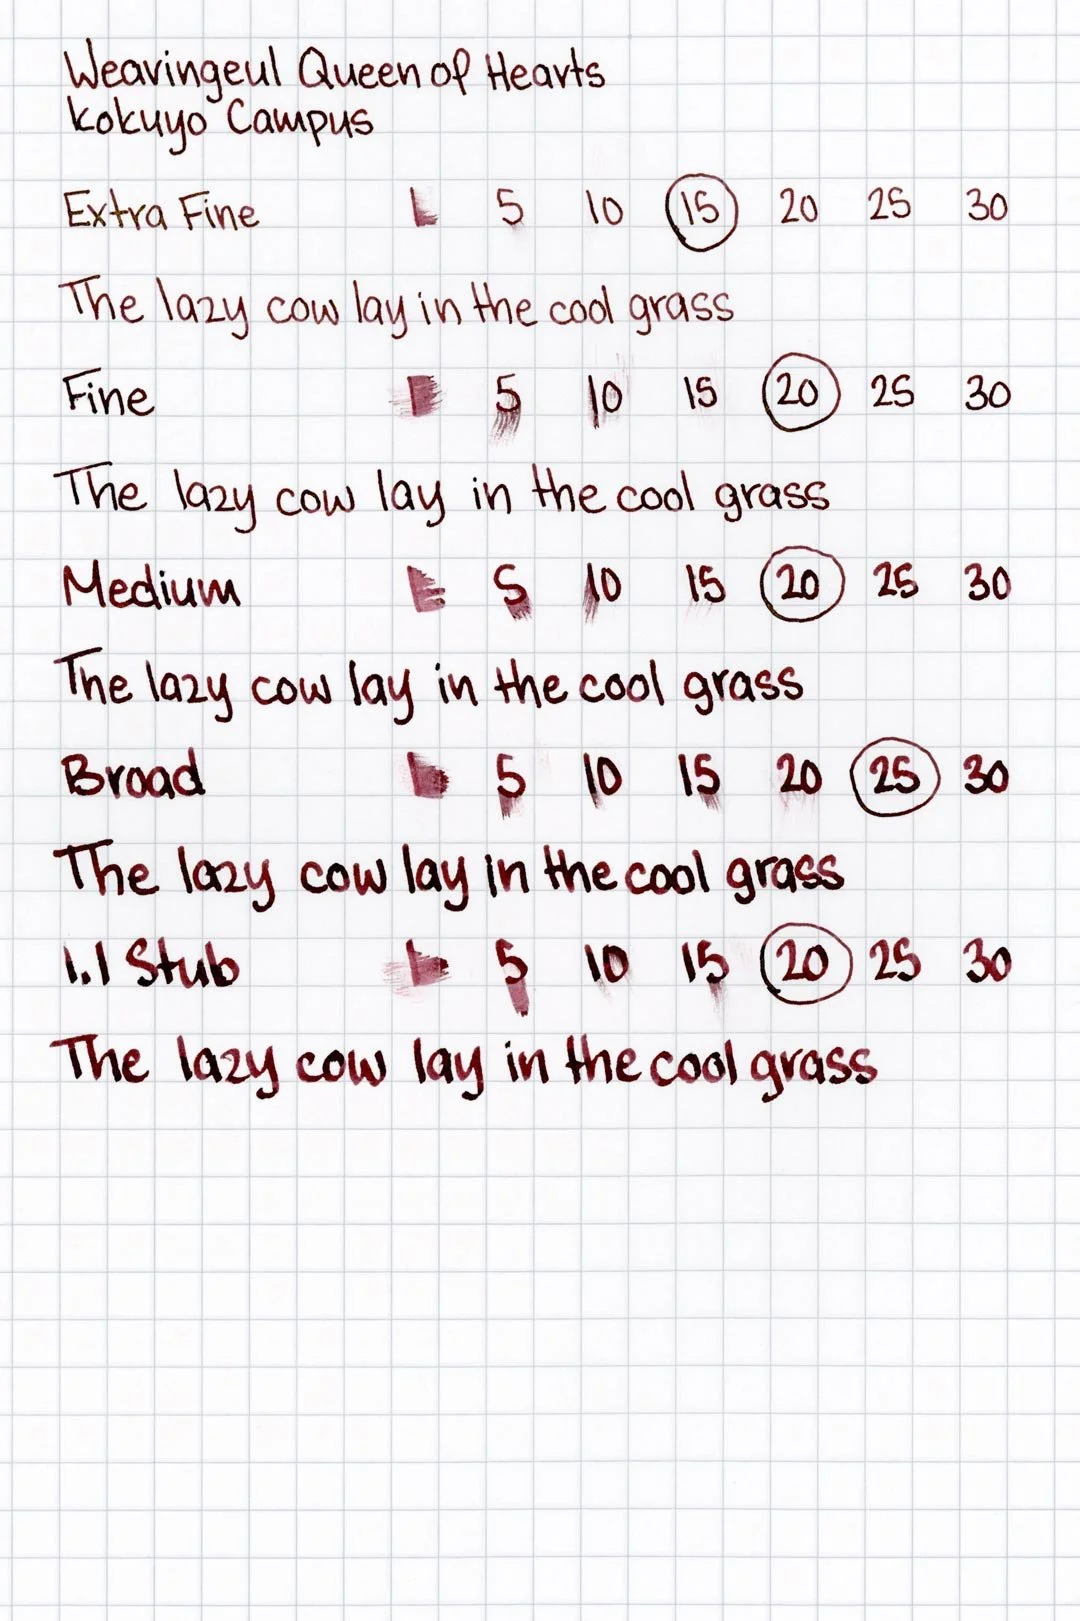 Weavingeul Queen of Hearts
Kokuyo Campus
Extra Fine 5 10 15 20 25 30
The lazy cow lay in the cool grass
Fine 5 10 15 20 25 30
The lazy cow lay in the cool grass
Medium 5 10 15 20 25 30
The lazy cow lay in the cool grass
Broad 5 10 15 20 25 30
The lazy cow lay in the cool grass
1.1 Stub 5 10 15 20 25 30
The lazy cow lay in the cool grass